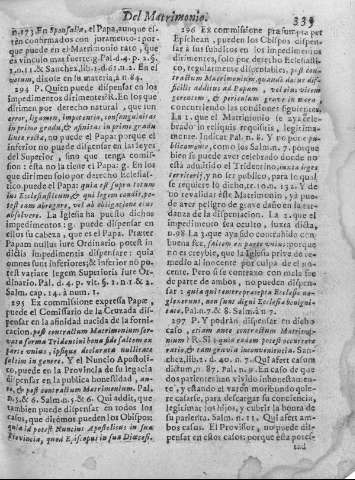 Del Matrimonio. 335
n.173. En Sponsalia, el Papa, aunque estén
confirmados con juramento: porque
puede en el Matrimonio rato, que
es vinculo mas fuerte. g. Pal. d.4. p. 2. §.
1. n.11 & Sanchez, lib.1. d.61. n.2. En el
quarum, dixose en su materia, n.84.
294 P. Quien puede dispensar en los
impedimentos dirimentes? R. En los que
dirimen por derecho natural, que son
error, ligamen, impotentia, consanguinitas
in primo gradu, & affinitas in primo gradu
linea recta, no puede el Papa: porque el
inferior no puede dispensar en las leyes
del Superior, sino que tenga comission
: esta no la tiene el Papa. g. En los
que dirimen solo por derecho Eclesiastico
puede el Papa: quia est supra totum
ius Ecclesiasticum & qui legem condit, potest
eam abrogare, vel ab obligatione eius
absolvere. La Iglesia ha puesto dichos
impedimentos: g. puede dispensar en
ellos su cabeça, que es el Papa. Praeter
Papam nullus iure Ordinario potest in
dictis impedimentis dispensare: quia
omnes sunt inferiores; & inferior non potest
variare legem Superioris iure Ordinario.
Pal. d.4. p. vit. §. 1. n 1 & 2.
Salm. cap. 14. a num. 1.
295 Ex commissione expressa Papæ,
puede el Comissario de la Cruzada dispensar
en la afinidad nacida de la fornicacion,
post contractum Matrimonium servata
forma Tridentini bona fide saltem ex
parte unius, ipsisque declarata nullitate
saltim in genere. Y el Nuncio Apostolico,
puede en la Provincia de su legacia
dispensar en la publica honestidad, ante,
& post contractum Matrimonium. Pal.
n.5. & 6. Salm. n.5 & 6. Qui addit, que
tambien puede dispensar en todos los
casos, que diremos pueden los Obispos:
quia id potest Nuncius Apostolicus in sua
Provincia, quod Episcopus in sua Diœcesi.
296 Ex commissione præsumpta per
Epicheian, pueden los Obispos dispensar
à sus subditos en los impedimentos
dirimentes, solo por derecho Eclesiastico,
regularmente dispensables, post
contractum Matrimonium, quando datur difficilis
aditus ad Papam, vel eius vicem
gerentem, & periculum grave in mora:
concurriendo las condiciones siguientes.
La 1. que el Matrimonio se aya celebrado
in reliquis requisitis, legitimamente.
Indicat Pal. n. 8. Y no puree publicamente,
como los Salm. n. 5. porque
bien se puede aver celebrado donde no
està admitido el Tridentino, iuxta initer
territorij, y no ser publico, para lo qual
se requiere lo dicho, tr. 10. n. 132. Y de
no revalidar este Matrimonio, ya puede
aver peligro de grave daño en la tardança
de la dispensacion. La 2. que el
impedimento sea oculto, iuxta dicta,
n.98 La 3. que va sido contrahido con
buena fee, saltem ex parte unius: porque
no es creyble, que la Iglesia prive de remedio
al inocente por culpa del nocente.
Pero si se contraxo con mala fee
de parte de ambos, no pueden dispensar
: quia qui contempto gladio Ecclesiæ egerunt,
non sunt digni Ecclesiæ benignitate.
Pal. n.7. & 8. Salm. à n 7.
297 P. Y podràn dispensar en dicho
caso, etiam ante contractum Matrimonium
? R. Si: quia eadem potest occurrere
ratio, & tam grave inconveniens. Sanchez,
libr. 2. d. 40. n. 7. Qui affert casum
dictum, n. 87. Pal. n. 9. En caso de que
dos parientes han vivido inhonestamente,
y estando al varon moribundo quiere
casarse, para descargar su conciencia,
legitimar los hijos, y cubrir la honra de
su parienta. Salm. n. 11. Qui affert ambos
casos. El Provisor, no puede dispensar
en estos casos: porque esta potestad
tad